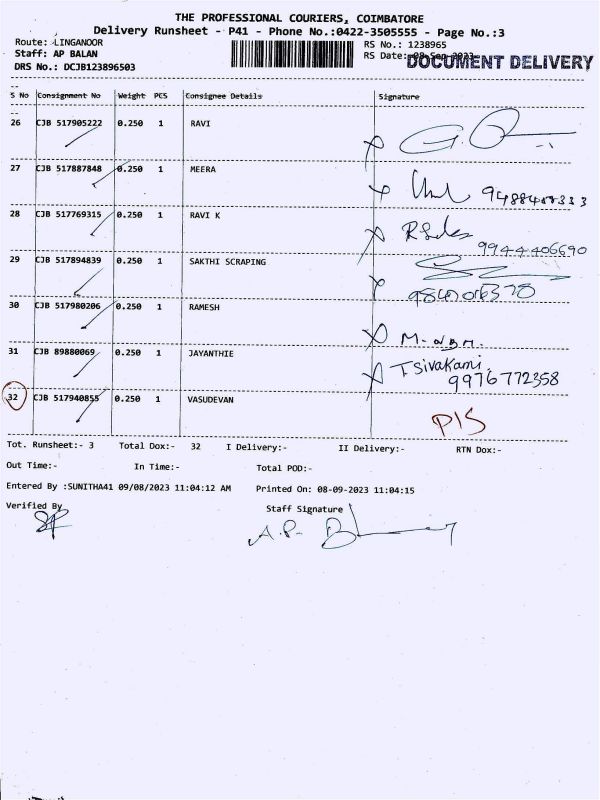 THE PROFESSIONAL COURIERS, COIMBATORE
Delivery Runsheet - P41 - Phone No.:0422-3505555 - Page No.:3
Route: LINGANOOR RS No.: 1238965
Staff: AP BALAN RS Date: 08-Sep-2023
DRS No.: DCJB123896503 DOCUMENT DELIVERY
S No Consignment No Weight PCS Consignee Details Signature
26 CJB 517905222 0.250 1 RAVI
27 CJB 517887848 0.250 1 MEERA
28 CJB 517769315 0.250 1 RAVI K
9944406690
29 CJB 517894839 0.250 1 SAKTHI SCRAPING
30 CJB 517980206 0.250 1 RAMESH
31 CJB 89880069 0.250 1 JAYANTHIE
T Sivakami
9976772358
32 CJB 517940855 0.250 1 VASUDEVAN
PIS
Tot. Runsheet:- 3 Total Dox:- 32 I Delivery:- II Delivery:- RTN Dox:-
Out Time:- In Time:- Total POD:-
Entered By :SUNITHA41 09/08/2023 11:04:12 AM Printed On: 08-09-2023 11:04:15
Verified By Staff Signature
A.P.